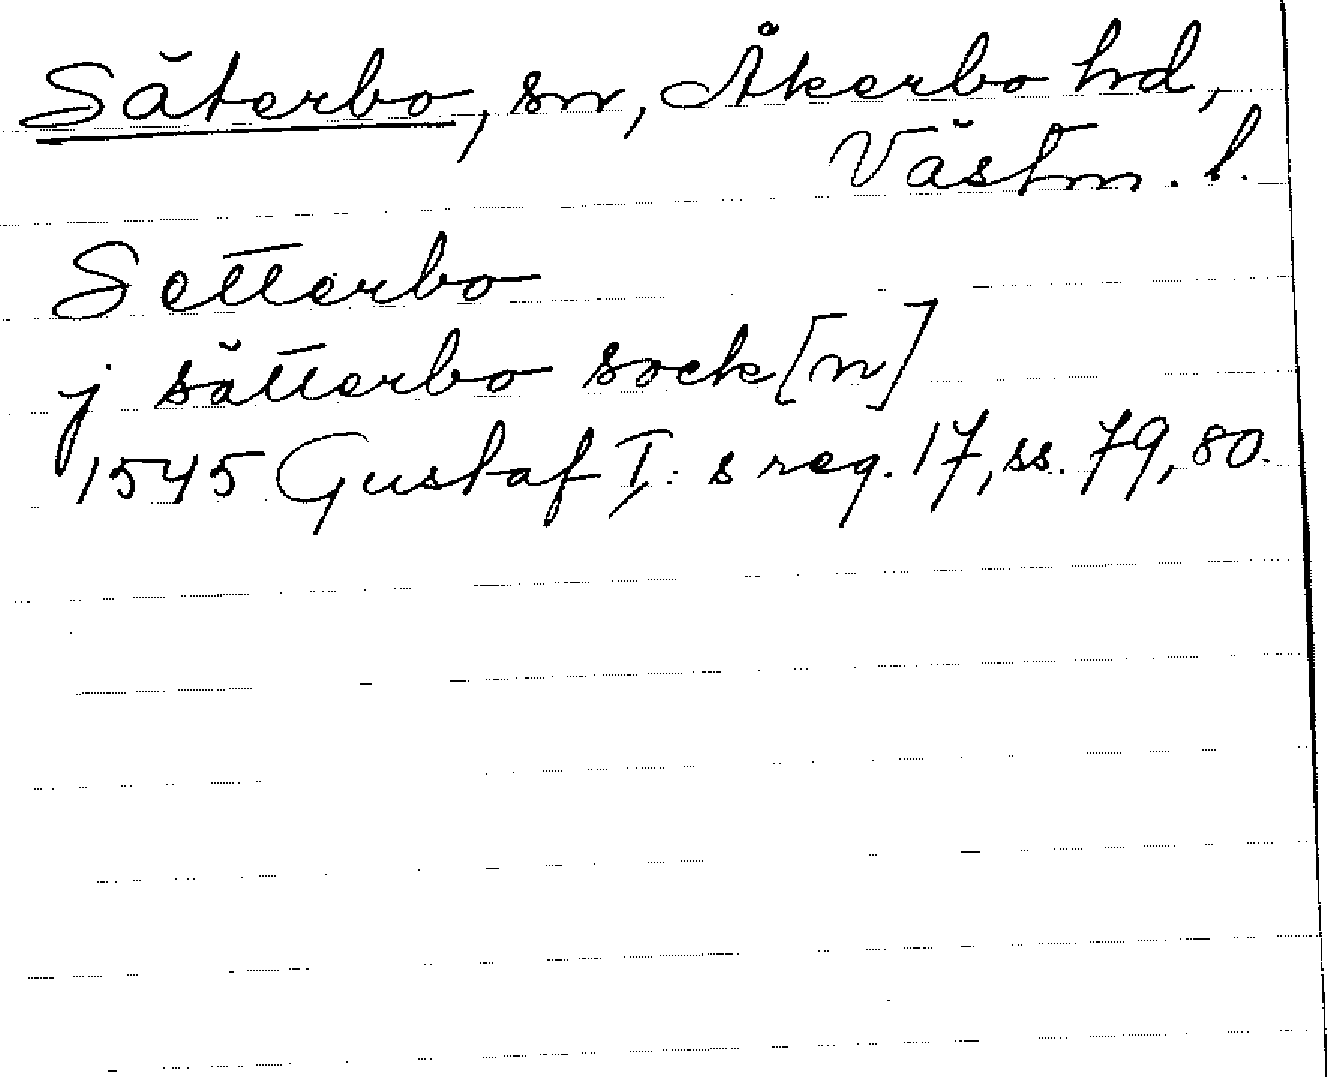 Säterbo, sn, Åkerbo hd,
Västm. l.
Setterbo
j sätterbo sock[n]
1545 Gustaf I:s reg. 17, ss. 79, 80.